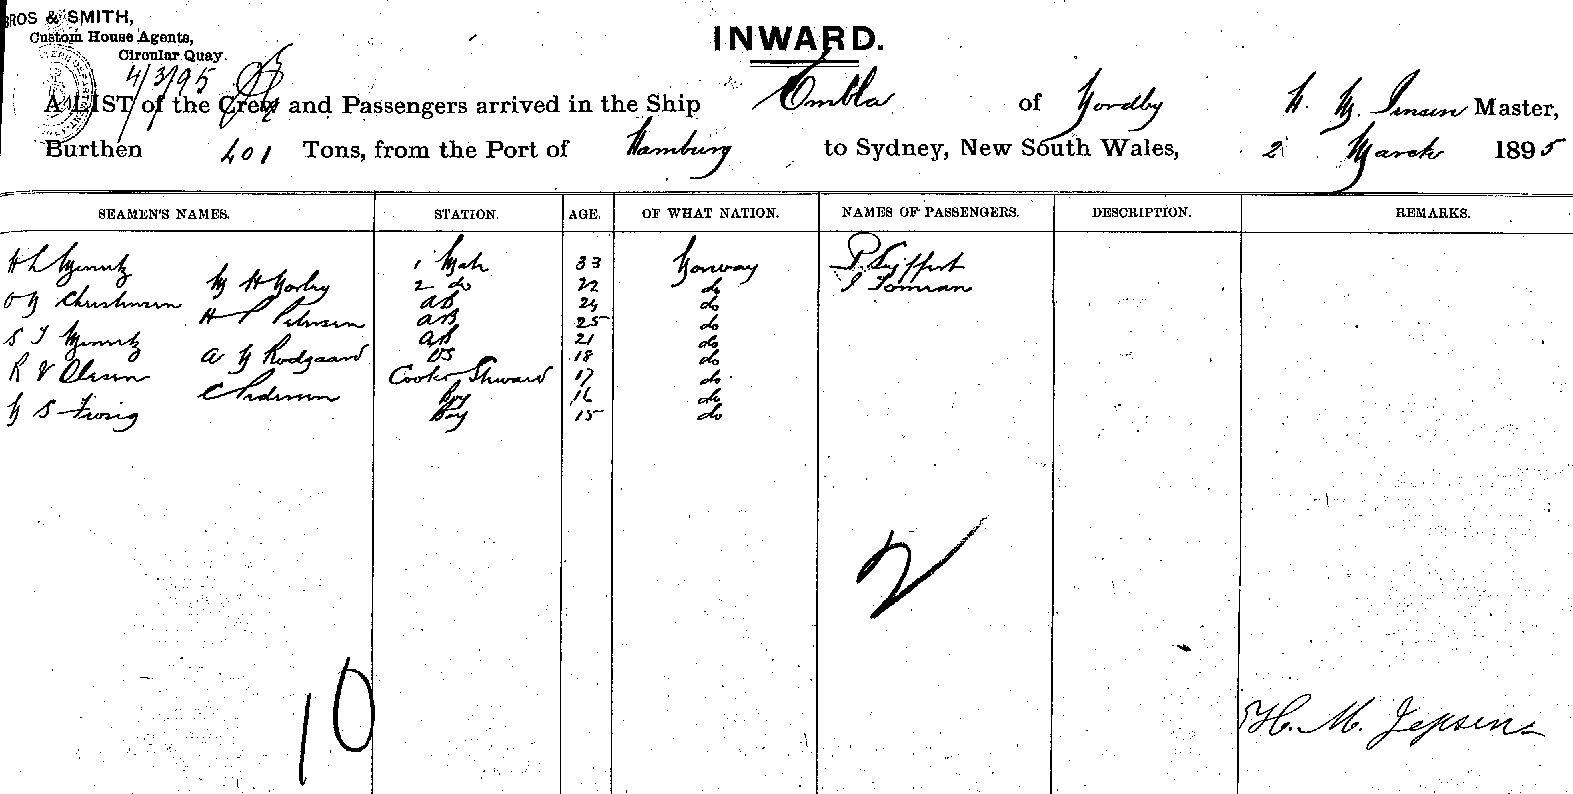 BROS & SMITH,
Custom House Agents,
Circular Quay.
4/3/95
INWARD.
A LIST of the Crew and Passengers arrived in the Ship Embla of Nordby H. M. Jensen Master,
Burthen 401 Tons, from the Port of Hamburg to Sydney, New South Wales, 2 March 1895
SEAMEN'S NAMES. STATION. AGE. OF WHAT NATION. NAMES OF PASSENGERS. DESCRIPTION. REMARKS.
H L 1 Mate 33 Norway P. Seiffert
M H 2 do 22 do
O N Christensen AB 24 do
H P Petersen AB 25 do
S J AB 21 do
A N Rodgaard OS 18 do
R V Olesen Cook & Steward 17 do
C Pedersen Boy 16 do
N S Boy 15 do
2
10
H. M. Jepsen